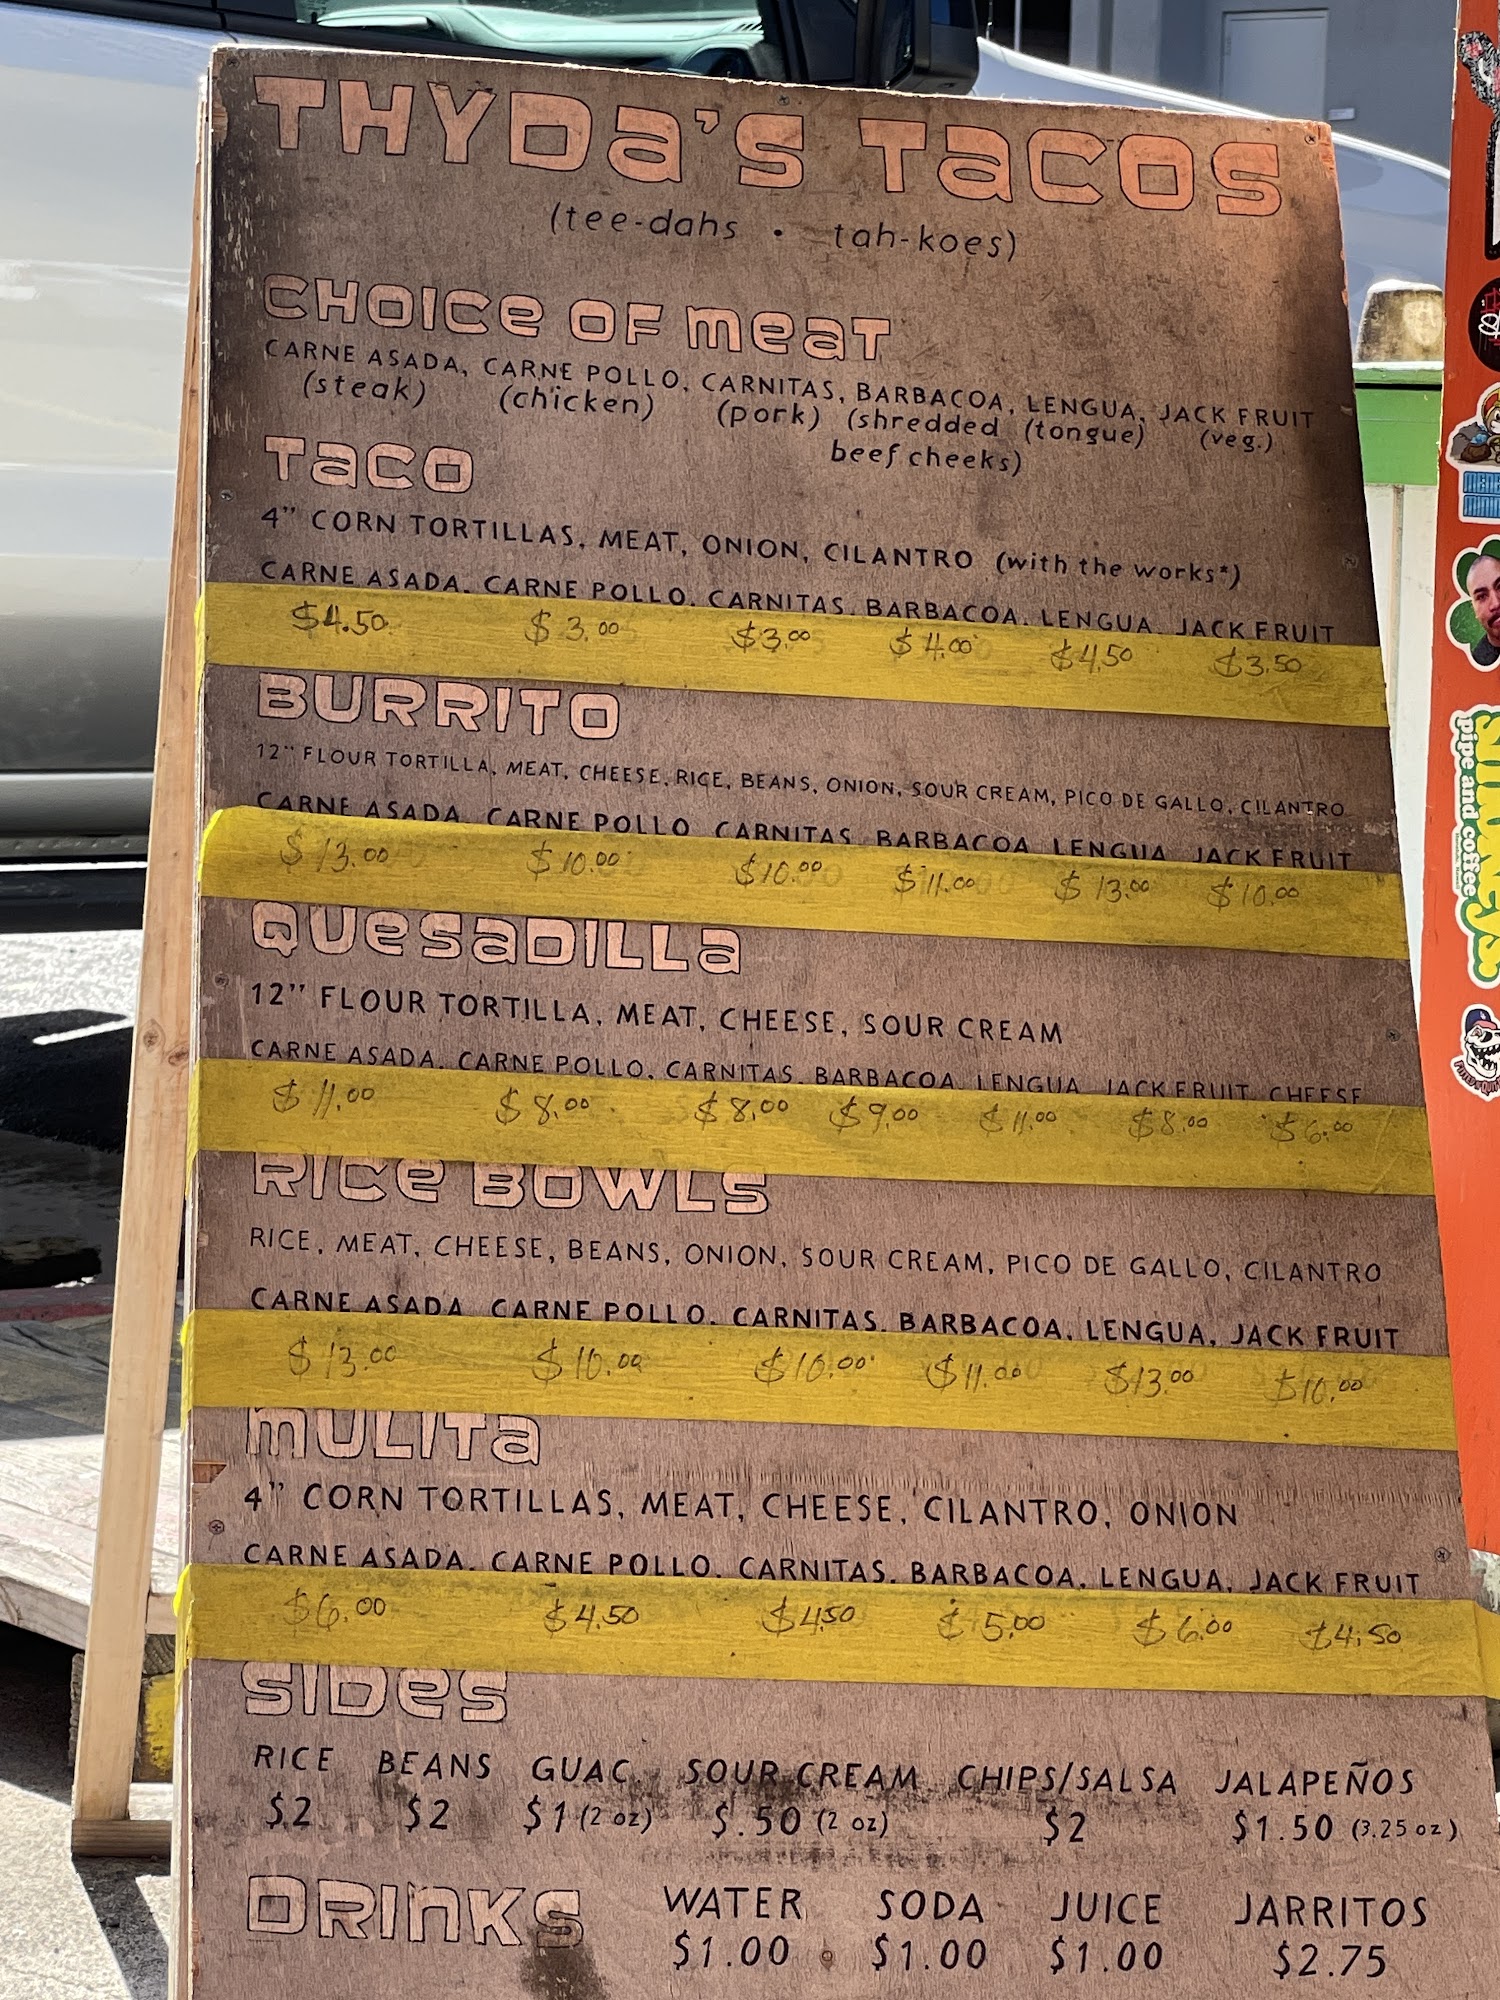 THYDA'S TACOS
(tee-dahs • tah-koes)
CHOICE OF MEAT
CARNE ASADA, CARNE POLLO, CARNITAS, BARBACOA, LENGUA, JACK FRUIT
(steak) (chicken) (pork) (shredded beef cheeks) (tongue) (veg.)
TACO
4" CORN TORTILLAS, MEAT, ONION, CILANTRO (with the works*)
CARNE ASADA, CARNE POLLO, CARNITAS, BARBACOA, LENGUA, JACK FRUIT
$4.50 $3.00 $3.00 $4.00 $4.50 $3.50
BURRITO
12" FLOUR TORTILLA, MEAT, CHEESE, RICE, BEANS, ONION, SOUR CREAM, PICO DE GALLO, CILANTRO
CARNE ASADA, CARNE POLLO, CARNITAS, BARBACOA, LENGUA, JACK FRUIT
$13.00 $10.00 $10.00 $11.00 $13.00 $10.00
QUESADILLA
12" FLOUR TORTILLA, MEAT, CHEESE, SOUR CREAM
CARNE ASADA, CARNE POLLO, CARNITAS, BARBACOA, LENGUA, JACK FRUIT, CHEESE
$11.00 $8.00 $8.00 $9.00 $11.00 $8.00 $6.00
RICE BOWLS
RICE, MEAT, CHEESE, BEANS, ONION, SOUR CREAM, PICO DE GALLO, CILANTRO
CARNE ASADA, CARNE POLLO, CARNITAS, BARBACOA, LENGUA, JACK FRUIT
$13.00 $10.00 $10.00 $11.00 $13.00 $10.00
MULITA
4" CORN TORTILLAS, MEAT, CHEESE, CILANTRO, ONION
CARNE ASADA, CARNE POLLO, CARNITAS, BARBACOA, LENGUA, JACK FRUIT
$6.00 $4.50 $4.50 $5.00 $6.00 $4.50
SIDES
RICE BEANS GUAC SOUR CREAM CHIPS/SALSA JALAPEÑOS
$2 $2 $1 (2 oz) $.50 (2 oz) $2 $1.50 (3.25 oz)
DRINKS WATER SODA JUICE JARRITOS
$1.00 $1.00 $1.00 $2.75
pipe and coffee